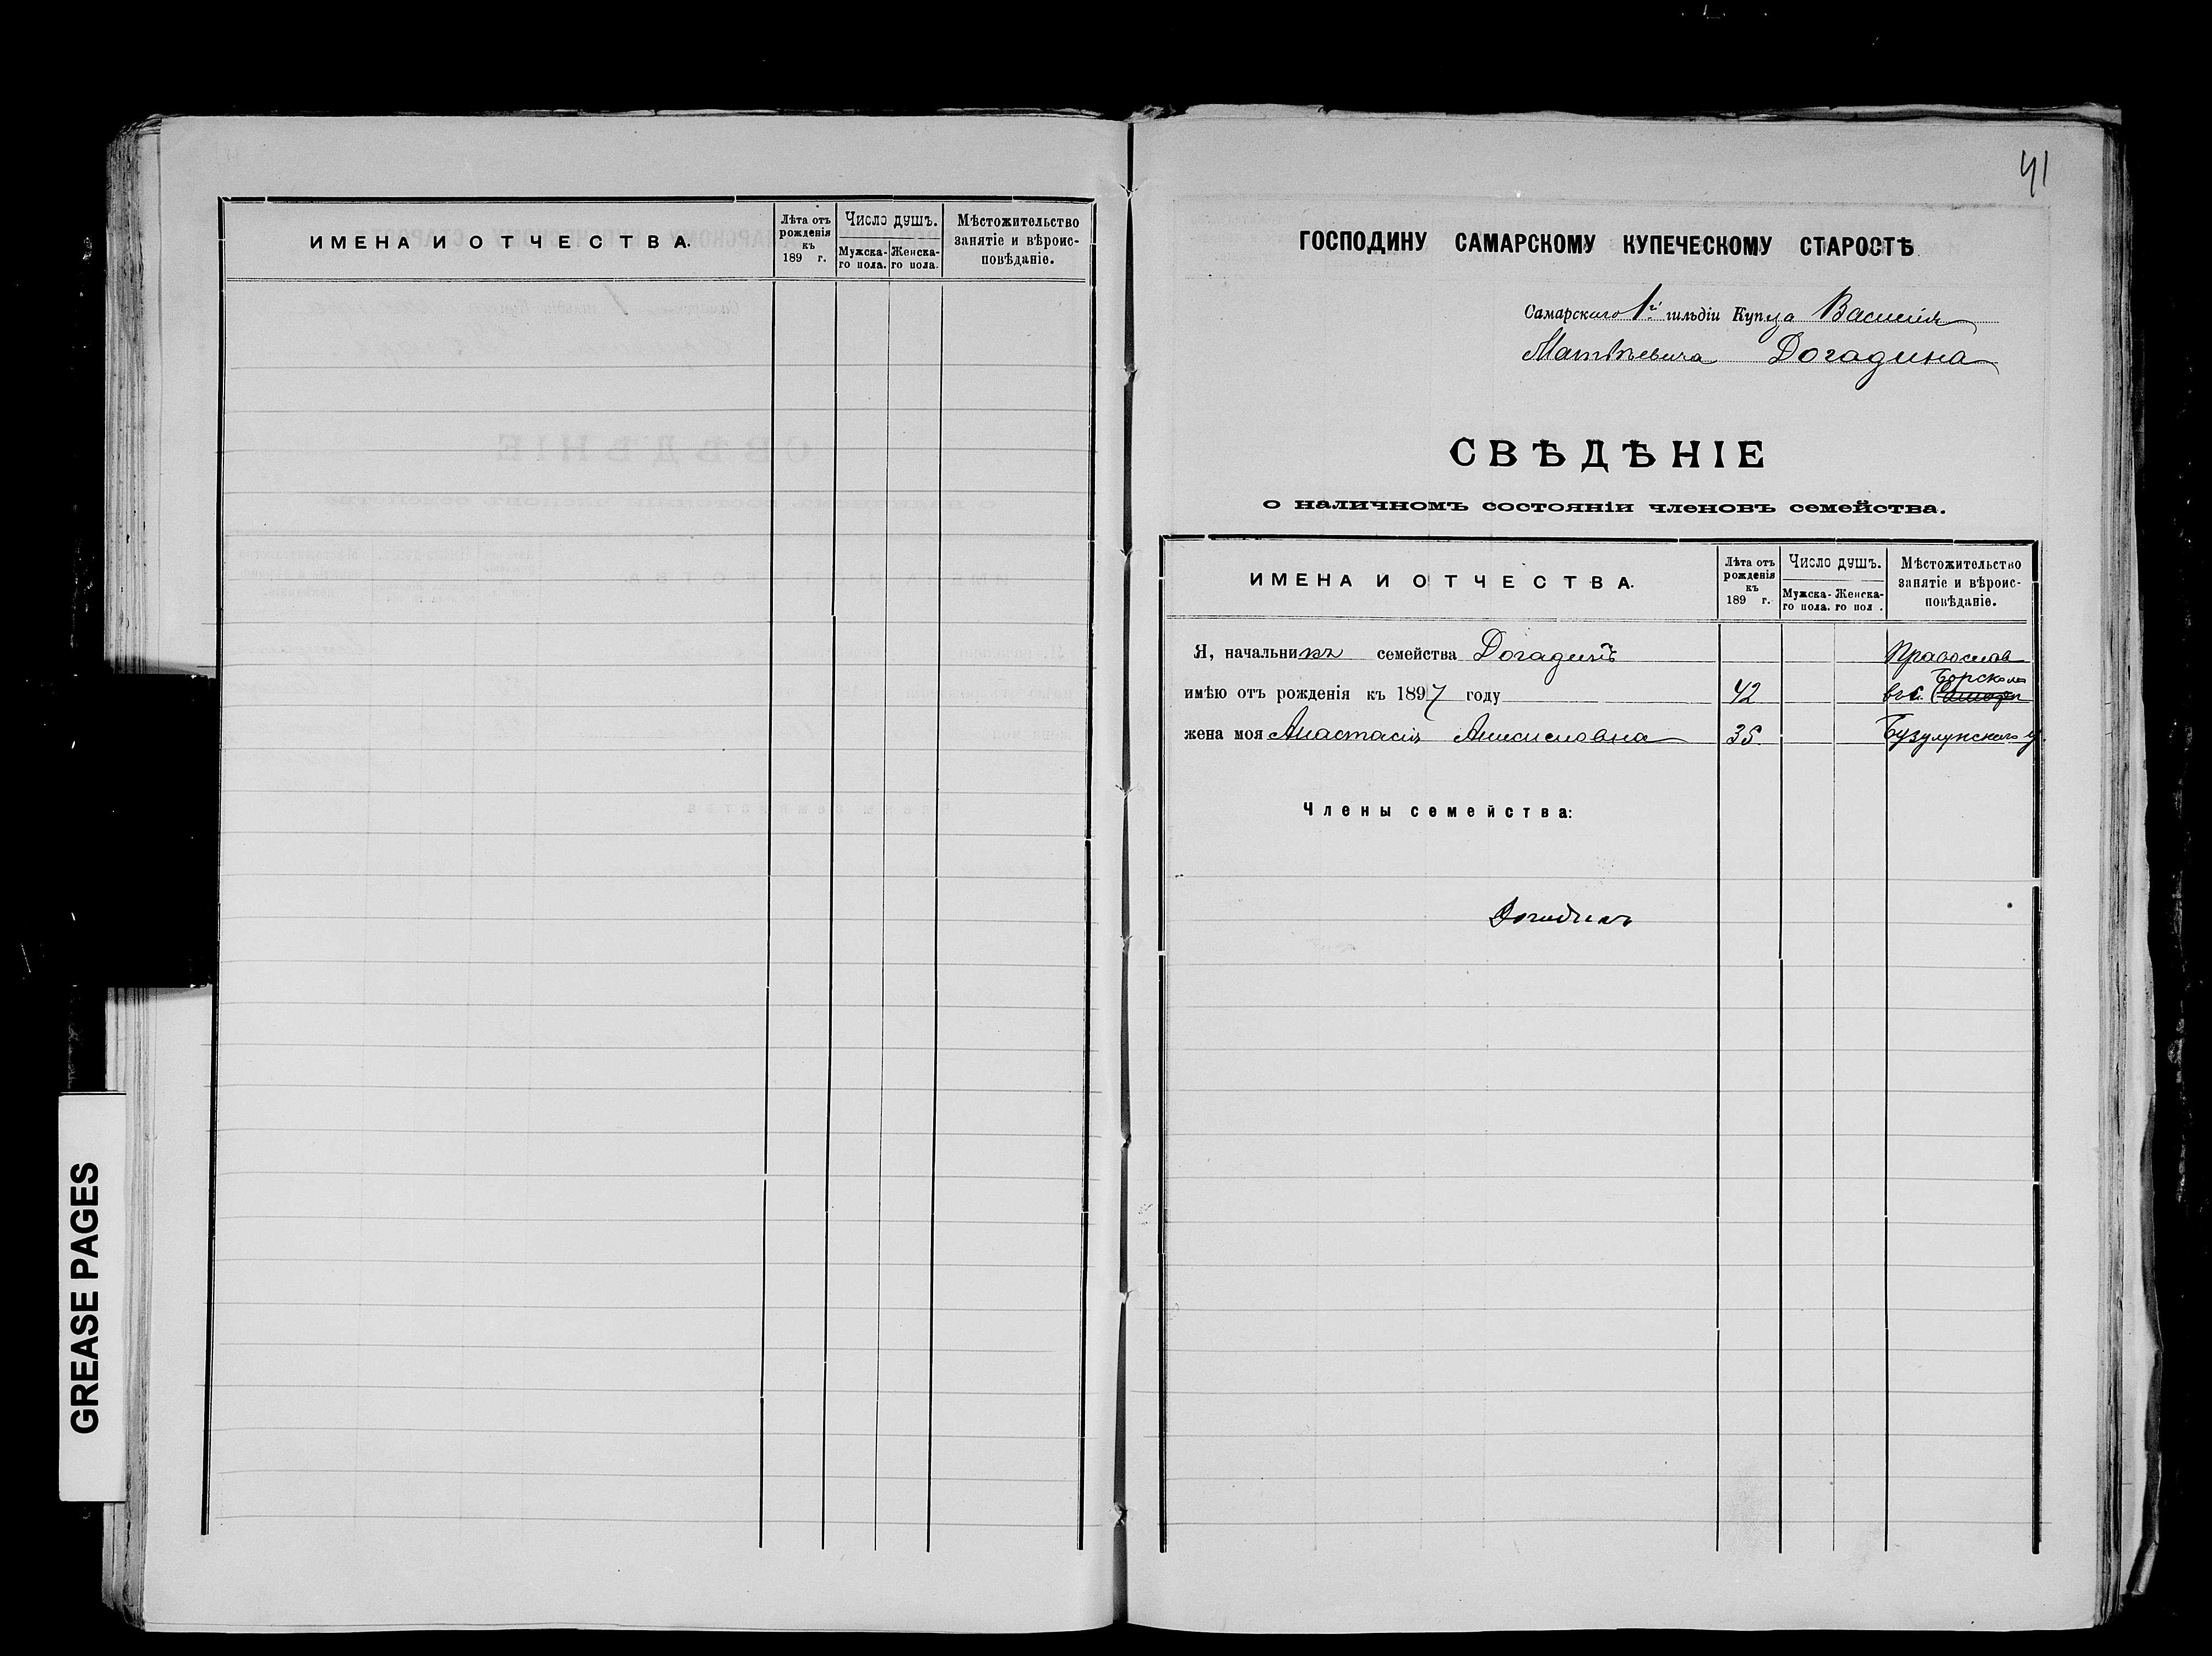 ИМЕНА И ОТЧЕСТВА.
Лѣта отъ рожденія къ 189 г.
Число душъ.
Мужска-го пола.
Женска-го пола.
Мѣстожительство занятіе и вѣроис-повѣданіе.
GREASE PAGES
41
ГОСПОДИНУ САМАРСКОМУ КУПЕЧЕСКОМУ СТАРОСТѢ
Самарскаго 1й гильдіи Купца Василія
Матвѣевича Догадина
СВѢДѢНІЕ
о наличномъ состояніи членовъ семейства.
ИМЕНА И ОТЧЕСТВА.
Лѣта отъ рожденія къ 189 г.
Число душъ.
Мужска-го пола.
Женска-го пол .
Мѣстожительство занятіе и вѣроис-повѣданіе.
Я, начальникъ семейства Догадинъ Православ
имѣю отъ рожденія къ 1897 году 42 въ с. Борскомъ
жена моя Анастасія 35 Бузулукскаго у.
Члены семейства:
Догадинъ